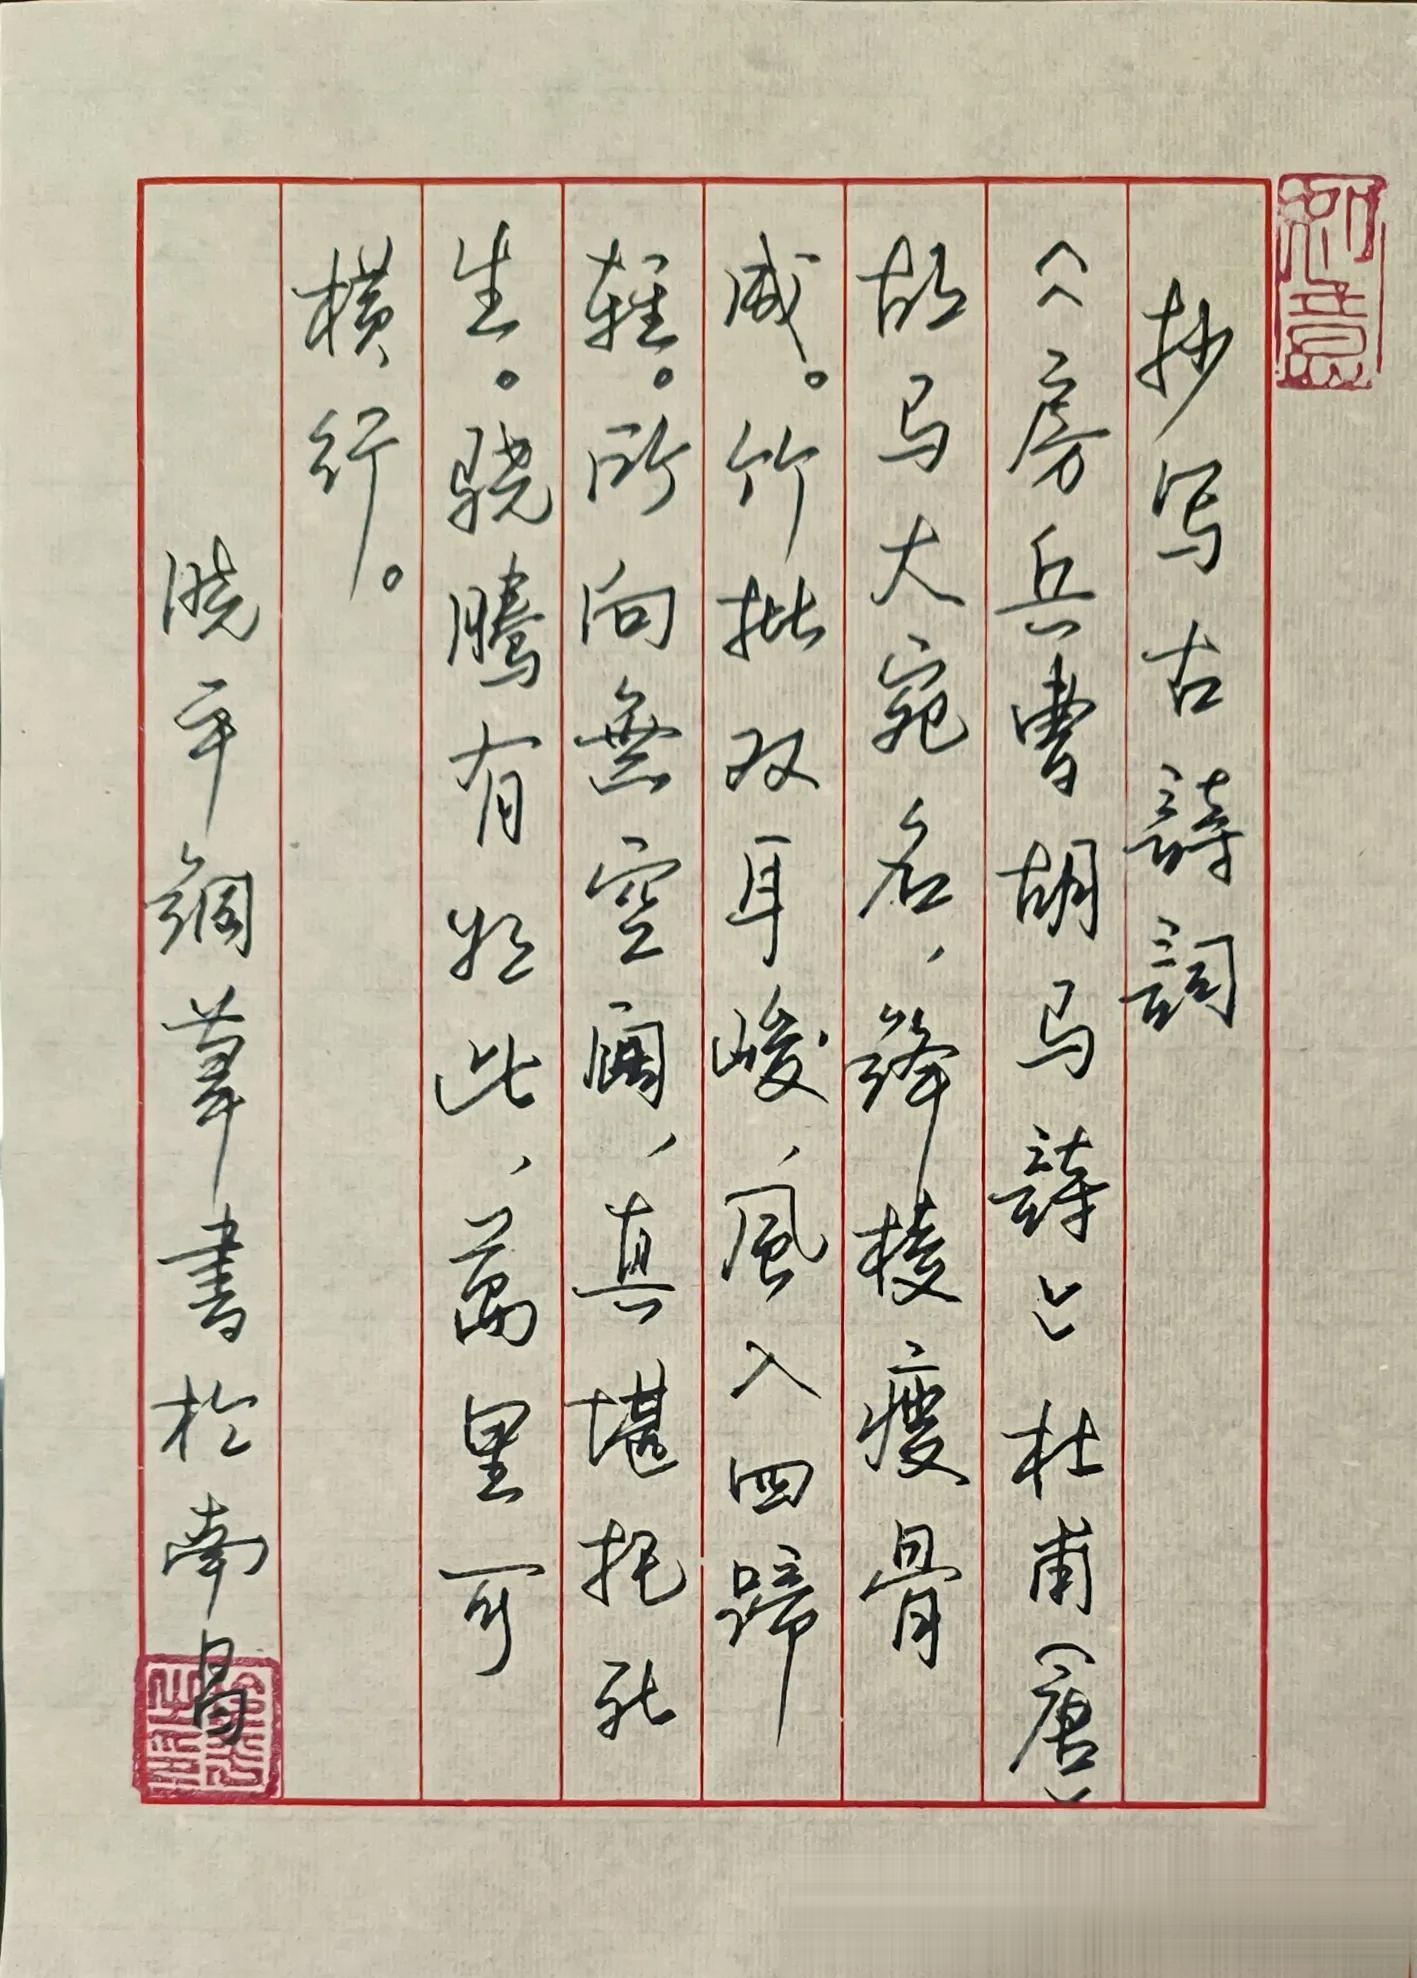 如意
抄写古詩詞
《房兵曹胡马詩》杜甫（唐）
胡马大宛名，鋒棱瘦骨
成。竹批双耳峻，風入四蹄
軽。所向無空阔，真堪托死
生。骁腾有如此，萬里可
横行。
晓平鋼筆書於南昌